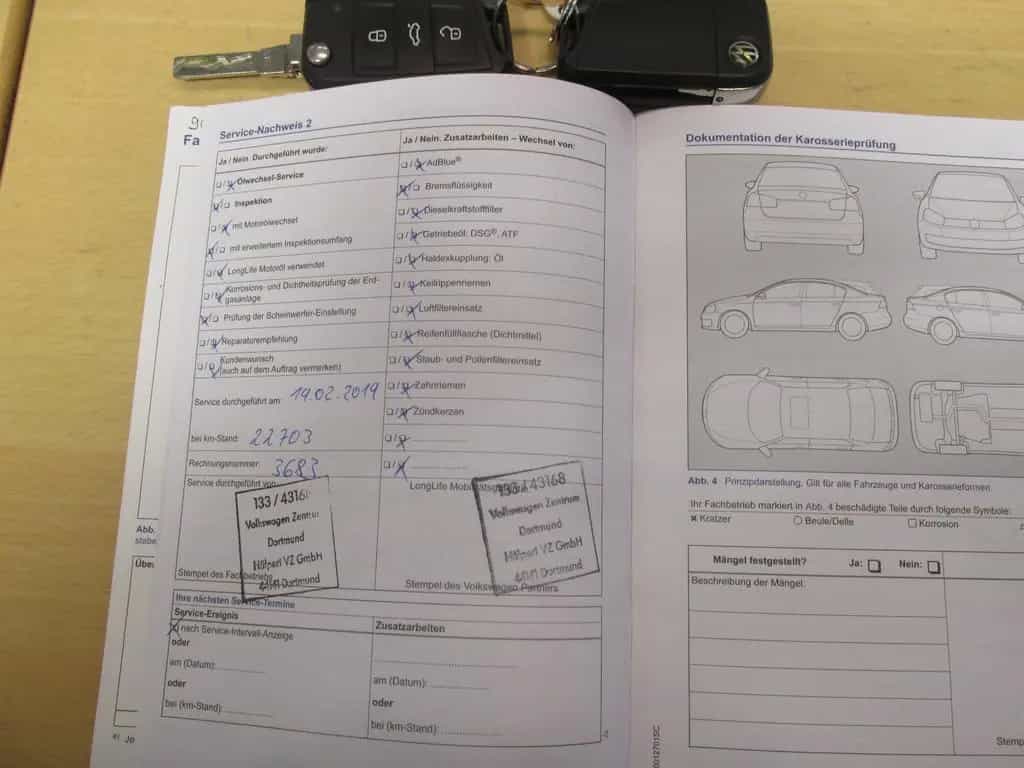 Service-Nachweis 2
Fa
Ja / Nein. Durchgeführt wurde:
Ölwechsel-Service
Inspektion
mit Motorölwechsel
mit erweitertem Inspektionsumfang
LongLife Motoröl verwendet
Korrosions- und Dichtheitsprüfung der Erd-
gasanlage
Prüfung der Scheinwerfer-Einstellung
Reparaturempfehlung
Kundenwunsch
(auch auf dem Auftrag vermerken)
Service durchgeführt am: 19.02.2019
bei km-Stand: 22703
Rechnungsnummer: 3683
Service durchgeführt von
133 / 43168
Volkswagen Zentrum
Dortmund
Hülpert VZ GmbH
Dortmund
Stempel des Fachbetriebs
Ja / Nein. Zusatzarbeiten – Wechsel von:
AdBlue®
Bremsflüssigkeit
Dieselkraftstofffilter
Getriebeöl: DSG®, ATF
Haldexkupplung: Öl
Keilrippenriemen
Luftfiltereinsatz
Reifenfüllflasche (Dichtmittel)
Staub- und Pollenfiltereinsatz
Zahnriemen
Zündkerzen
LongLife
133 / 43168
Volkswagen Zentrum
Dortmund
Hülpert VZ GmbH
Dortmund
Stempel des Volkswagen Partners
Ihre nächsten Service-Termine
Service-Ereignis
nach Service-Intervall-Anzeige
oder
am (Datum):
oder
bei (km-Stand):
Zusatzarbeiten
am (Datum):
oder
bei (km-Stand):
Abb.
Dokumentation der Karosserieprüfung
Abb. 4 Prinzipdarstellung. Gilt für alle Fahrzeuge und Karosserieformen.
Ihr Fachbetrieb markiert in Abb. 4 beschädigte Teile durch folgende Symbole:
Kratzer
Beule/Delle
Korrosion
Mängel festgestellt? Ja: Nein:
Beschreibung der Mängel:
Stemp